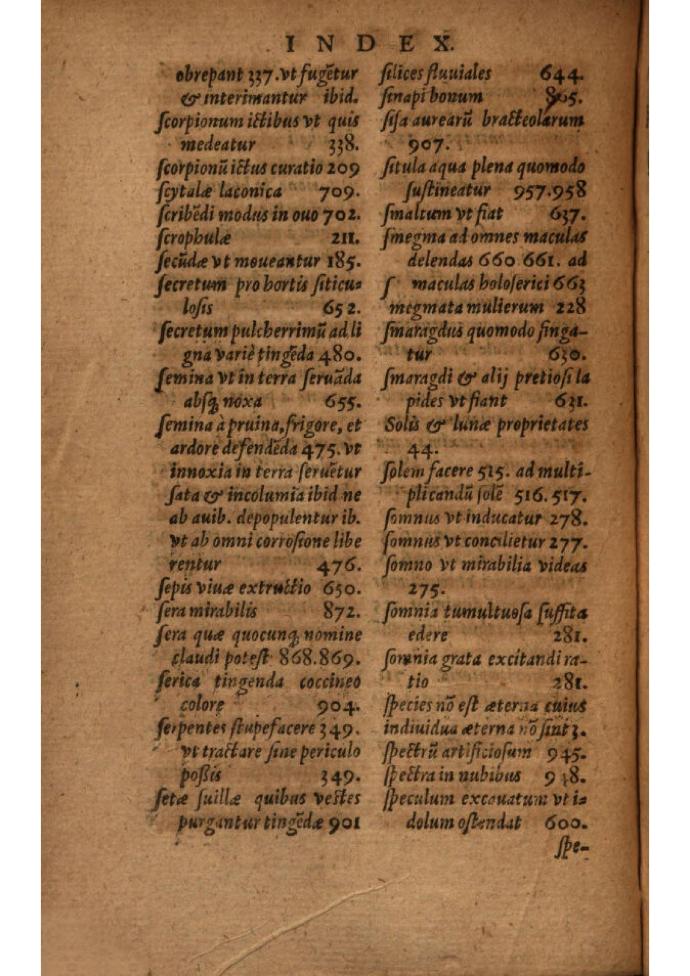 INDEX.
obrepant 337. vt fugẽtur
& interimantur ibid.
ſcorpionum ictibus vt quis
medeatur 338.
ſcorpionũ ictus curatio 209
ſcytalæ laconica 709.
ſcribẽdi modus in ouo 702.
ſcrophulæ 211.
ſecũdæ vt moueantur 185.
ſecretum pro hortis ſiticu-
loſis 652.
ſecretum pulcherrimũ ad li
gna variè tingẽda 480.
ſemina vt in terra ſeruãda
abſq; noxa 655.
ſemina à pruina, frigore, et
ardore defendẽda 475. vt
innoxia in terra ſeruẽtur
ſata & incolumia ibid ne
ab auib. depopulentur ib.
vt ab omni corroſione libe
rentur 476.
ſepis viuæ extructio 650.
ſera mirabilis 872.
ſera quæ quocunq; nomine
claudi poteſt 868.869.
ſerica tingenda coccineo
colore 904.
ſerpentes ſtupefacere 349.
vt tractare ſine periculo
poſsis 349.
ſetæ ſuillæ quibus veſtes
purgantur tingẽdæ 901
ſilices fluuiales 644.
ſinapi bonum 805.
ſiſa aurearũ bracteolarum
907.
ſitula aqua plena quomodo
ſuſtineatur 957.958
ſmaltum vt fiat 637.
ſmegma ad omnes maculas
delendas 660 661. ad
ſ maculas holoſerici 663
megmata mulierum 228
ſmaragdus quomodo finga-
tur 630.
ſmaragdi & alij pretioſi la
pides vt fiant 631.
Solis & lunæ proprietates
44.
ſolem facere 515. ad multi-
plicandũ ſolẽ 516.517.
ſomnus vt inducatur 278.
ſomnus vt concilietur 277.
ſomno vt mirabilia videas
275.
ſomnia tumultuoſa ſuffita
edere 281.
ſomnia grata excitandi ra-
tio 281.
ſpecies nõ eſt æterna cuius
indiuidua æterna nõ ſint 3.
ſpectrũ artificioſum 945.
ſpectra in nubibus
ſpeculum excauatum vt i-
dolum oſtendat 600.
ſpe-